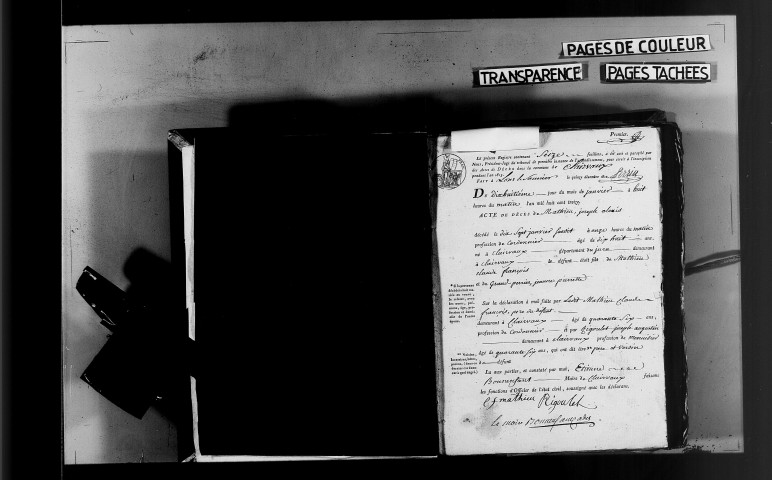 PAGES DE COULEUR
TRANSPARENCE PAGES TACHÉES
Premier.
Le présent Registre contenant Seize feuillets, a été coté et paraphé par
Nous, Président-Juge du tribunal de première instance de l'arrondissement, pour servir à l'inscription
des Actes de Décès dans la commune de Clairvaux
pendant l'an 1813.
Fait à Lons le Saunier le
Perrin
Du dixhuitième jour du mois de janvier à huit
heures du matin l'an mil huit cent treize
ACTE DE DÉCÈS de Mathieu, joseph alexis
décédé le dix Sept janvier susdit à onze heures du matin
profession de Cordonnier âgé de dix huit ans,
né à clairvaux département du jura demeurant
à clairvaux le défunt était fils de Mathieu
claude françois
et de Grand-perrin, jeanne pierrette
Sur la déclaration à moi faite par Ledit Mathieu Claude
françois, père du défunt
demeurant à Clairvaux âgé de quarante Six ans,
profession de Cordonnier et par Rigoulet joseph augustin
demeurant à clairvaux profession de Menuisier
âgé de quarante six ans, qui ont dit être père et voisin
du défunt
La mort portée, et constaté par moi, Etienne
Bonnenfant Maire de Clairvaux faisant
les fonctions d'Officier de l'état civil, soussigné avec les déclarans.
C f mathieu Rigoulet
le maire Bonnenfant